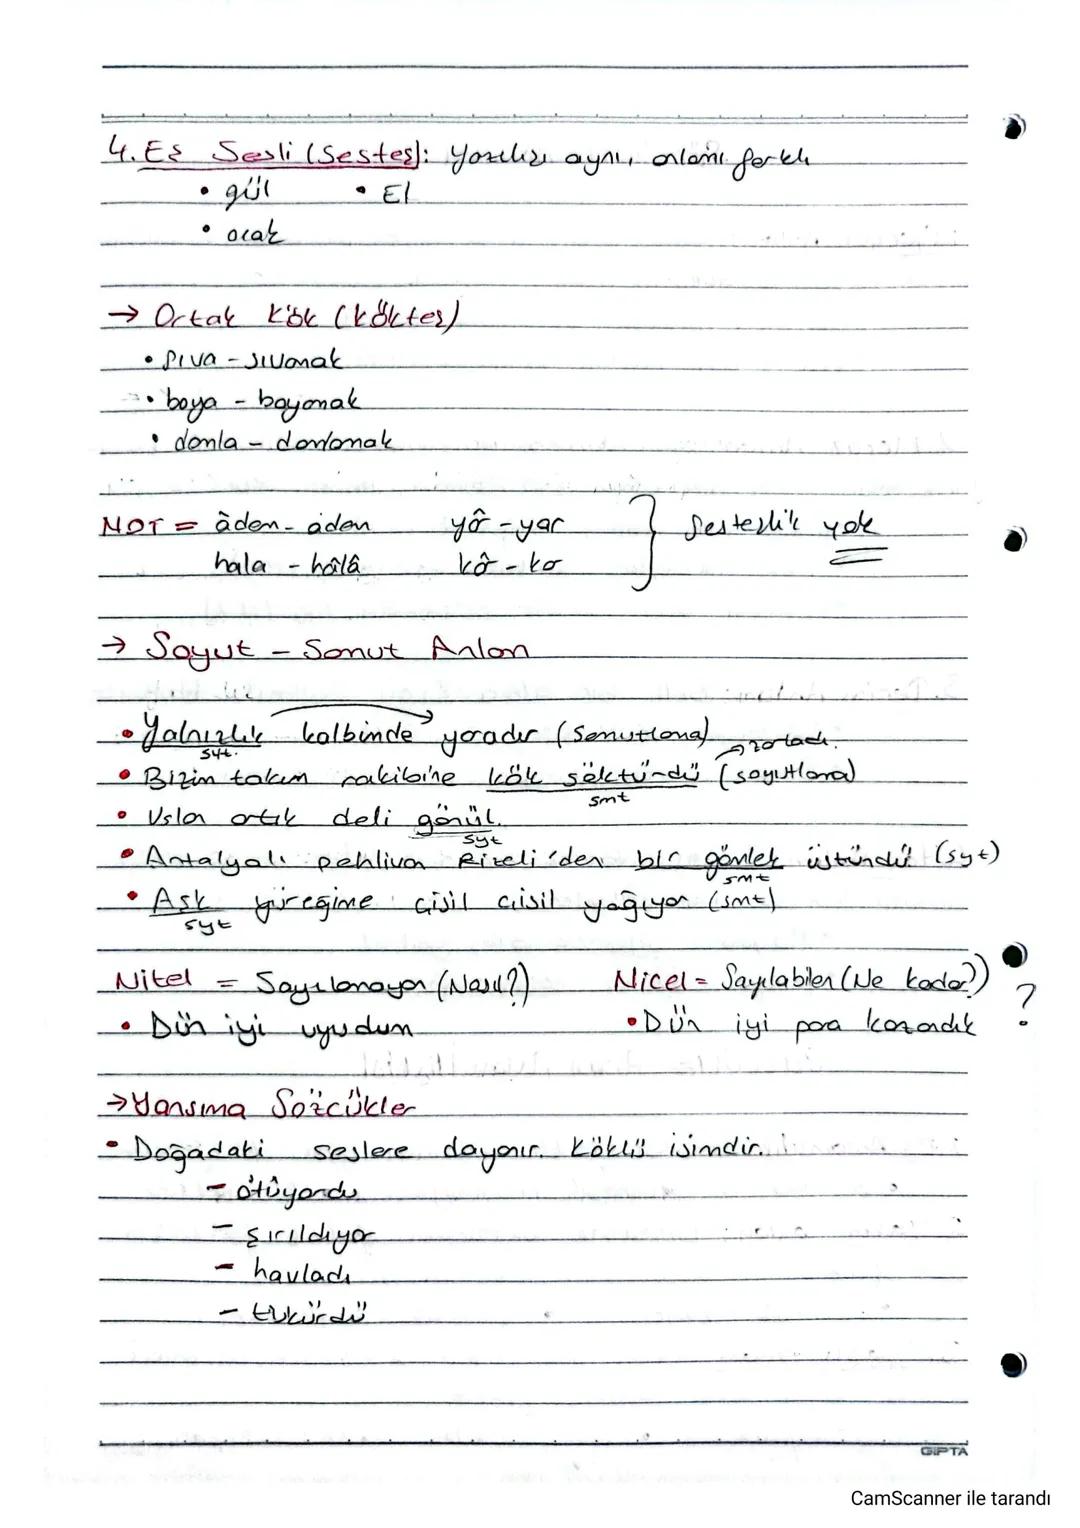 4. Eş Sesli (Sesteş): Yazılışı aynı, anlamı farklı
• gül • El
• ocak
→ Ortak Kök (Kökteş)
• sıva - sıvamak
• boya - boyamak
• damla - damlamak
NOT = âdem - adem yâr - yar } Sesteşlik yok
hala - hâlâ kâr - kar
→ Soyut - Somut Anlam
• Yalnızlık kalbinde yaradır (Somutlama)
syt. → zorladı.
• Bizim takım rakibine kök söktürdü (soyutlama)
smt
• Uslan artık deli gönül.
syt
• Antalyalı pehlivan Rizeli'den bir gömlek üstündü (syt)
smt
• Aşk yüreğime çisil çisil yağıyor (smt)
syt
Nitel = Sayılamayan (Nasıl?) Nicel = Sayılabilen (Ne kadar?) ?
• Dün iyi uyudum • Dün iyi para kazandık
→ Yansıma Sözcükler
- Doğadaki seslere dayanır. Köklü isimdir.
- ötüyordu
- şırıldıyor
- havladı
- tükürdü
GIPTA
CamScanner ile tarandı